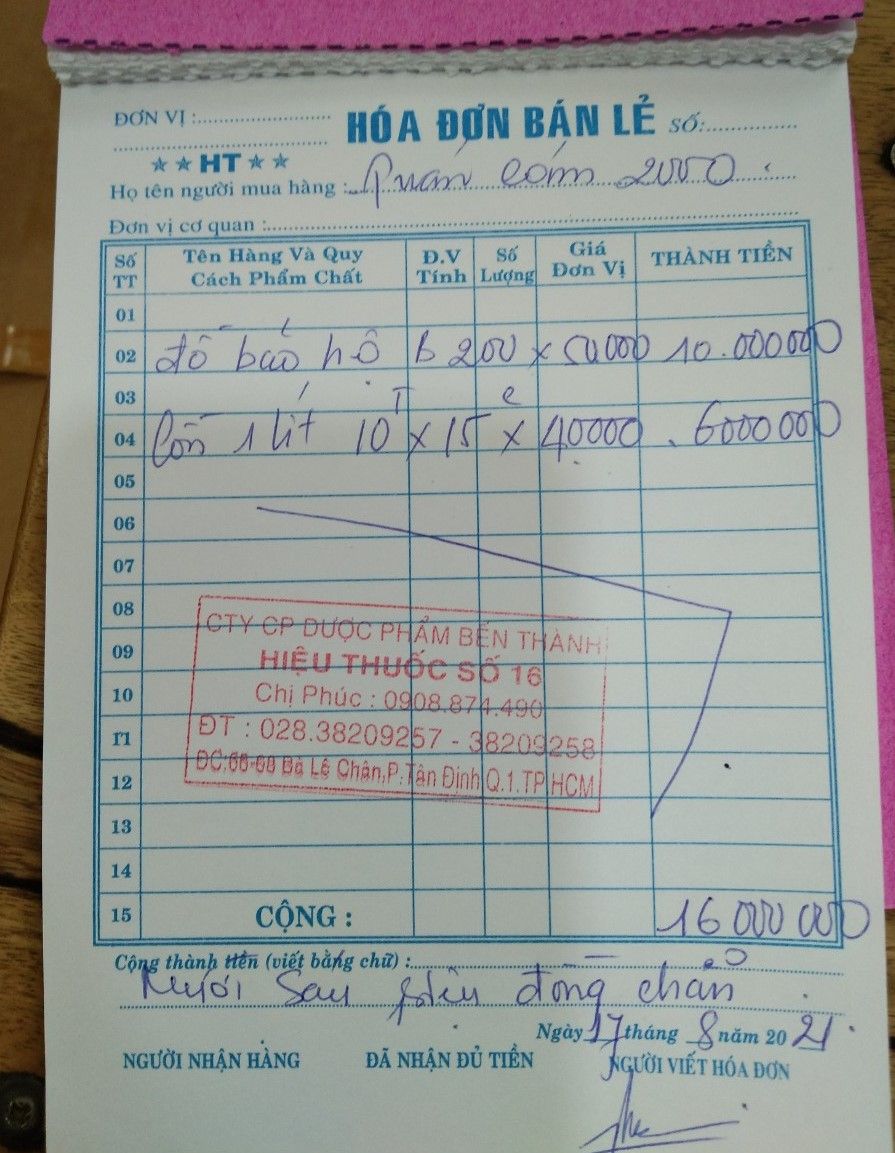 ĐƠN VỊ :
HÓA ĐƠN BÁN LẺ SỐ:
★ ★ HT ★ ★
Họ tên người mua hàng : Quán cơm 2000
Đơn vị cơ quan :
Số TT Tên Hàng Và Quy Cách Phẩm Chất Đ.V Tính Số Lượng Giá Đơn Vị THÀNH TIỀN
01
02 đồ bảo hộ b 200 x 50000 10.000000
03
04 Cồn 1 lít 10T x 15c x 40000. 6000000
05
06
07
08
09
10
11
12
13
14
15 CỘNG : 16 000 000
CTY CP DƯỢC PHẨM BẾN THÀNH
HIỆU THUỐC SỐ 16
Chị Phúc : 0908.874.490
ĐT : 028.38209257 - 38209258
ĐC:66-68 Bà Lê Chân,P.Tân Định Q.1.TP HCM
Cộng thành tiền (viết bằng chữ) :
Mười sáu triệu đồng chẵn
Ngày 17 tháng 8 năm 20 21.
NGƯỜI NHẬN HÀNG ĐÃ NHẬN ĐỦ TIỀN NGƯỜI VIẾT HÓA ĐƠN